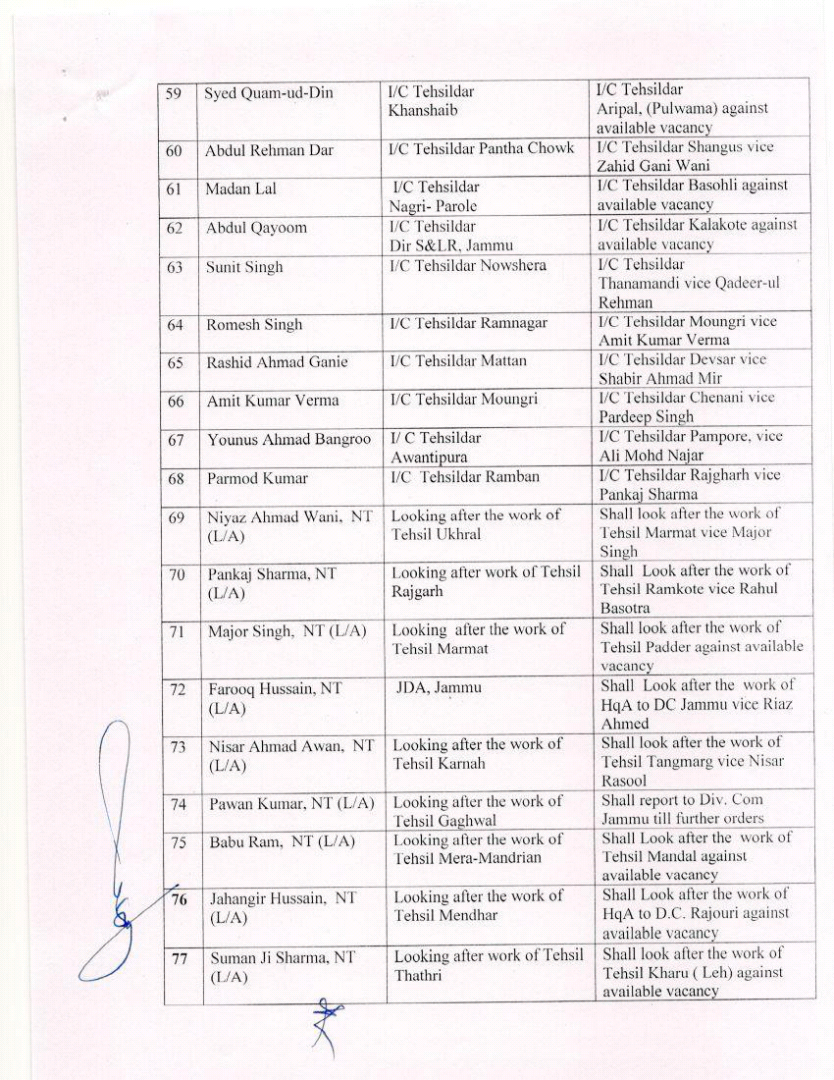 59 Syed Quam-ud-Din I/C Tehsildar I/C Tehsildar
Khanshaib Aripal, (Pulwama) against
available vacancy
60 Abdul Rehman Dar I/C Tehsildar Pantha Chowk I/C Tehsildar Shangus vice
Zahid Gani Wani
61 Madan Lal I/C Tehsildar I/C Tehsildar Basohli against
Nagri- Parole available vacancy
62 Abdul Qayoom I/C Tehsildar I/C Tehsildar Kalakote against
Dir S&LR, Jammu available vacancy
63 Sunit Singh I/C Tehsildar Nowshera I/C Tehsildar
Thanamandi vice Qadeer-ul
Rehman
64 Romesh Singh I/C Tehsildar Ramnagar I/C Tehsildar Moungri vice
Amit Kumar Verma
65 Rashid Ahmad Ganie I/C Tehsildar Mattan I/C Tehsildar Devsar vice
Shabir Ahmad Mir
66 Amit Kumar Verma I/C Tehsildar Moungri I/C Tehsildar Chenani vice
Pardeep Singh
67 Younus Ahmad Bangroo I/ C Tehsildar I/C Tehsildar Pampore, vice
Awantipura Ali Mohd Najar
68 Parmod Kumar I/C Tehsildar Ramban I/C Tehsildar Rajgharh vice
Pankaj Sharma
69 Niyaz Ahmad Wani, NT Looking after the work of Shall look after the work of
(L/A) Tehsil Ukhral Tehsil Marmat vice Major
Singh
70 Pankaj Sharma, NT Looking after work of Tehsil Shall Look after the work of
(L/A) Rajgarh Tehsil Ramkote vice Rahul
Basotra
71 Major Singh, NT (L/A) Looking after the work of Shall look after the work of
Tehsil Marmat Tehsil Padder against available
vacancy
72 Farooq Hussain, NT JDA, Jammu Shall Look after the work of
(L/A) HqA to DC Jammu vice Riaz
Ahmed
73 Nisar Ahmad Awan, NT Looking after the work of Shall look after the work of
(L/A) Tehsil Karnah Tehsil Tangmarg vice Nisar
Rasool
74 Pawan Kumar, NT (L/A) Looking after the work of Shall report to Div. Com
Tehsil Gaghwal Jammu till further orders
75 Babu Ram, NT (L/A) Looking after the work of Shall Look after the work of
Tehsil Mera-Mandrian Tehsil Mandal against
available vacancy
76 Jahangir Hussain, NT Looking after the work of Shall Look after the work of
(L/A) Tehsil Mendhar HqA to D.C. Rajouri against
available vacancy
77 Suman Ji Sharma, NT Looking after work of Tehsil Shall look after the work of
(L/A) Thathri Tehsil Kharu ( Leh) against
available vacancy